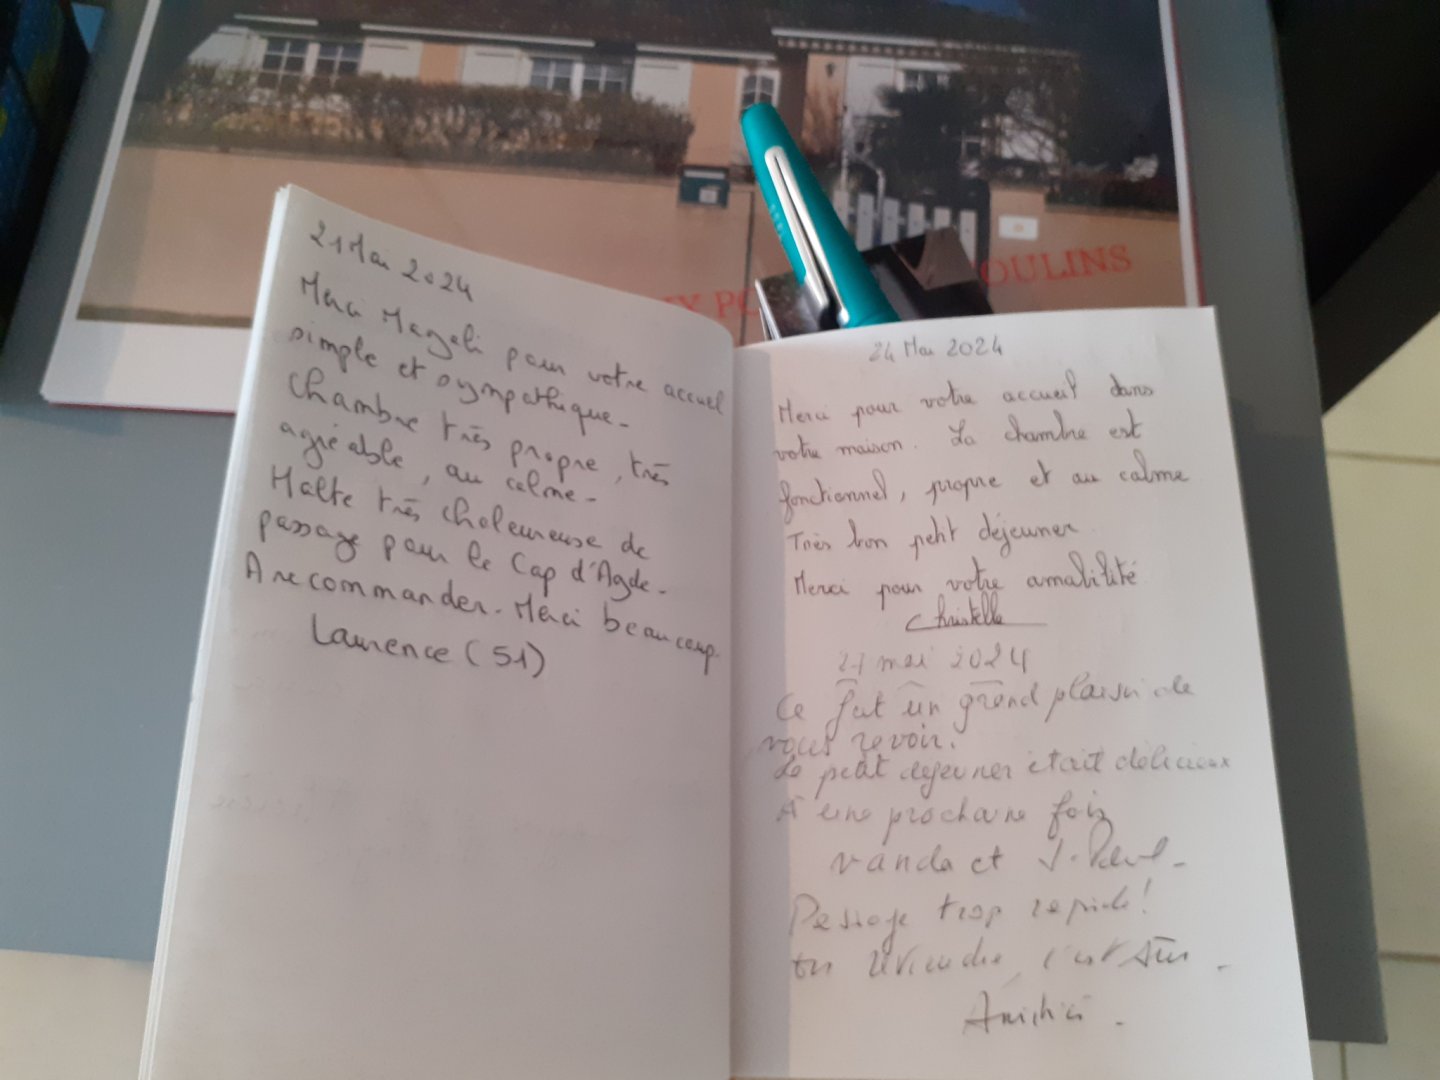 OULINS
21 Mai 2024
Merci Magali pour votre accueil
simple et sympathique.
Chambre très propre, très
agréable, au calme.
Halte très chaleureuse de
passage pour le Cap d'Agde.
A recommander. Merci beaucoup.
Laurence (51)
24 Mai 2024
Merci pour votre accueil dans
votre maison. La chambre est
fonctionnel, propre et au calme
Très bon petit déjeuner.
Merci pour votre amabilité
Christelle
27 mai 2024
Ce fut un grand plaisir de
vous revoir.
Le petit dejeuner était délicieux
A une prochaine fois
vanda et J. Paul -
Passage trop rapide!
on reviendra, c'est sûr.